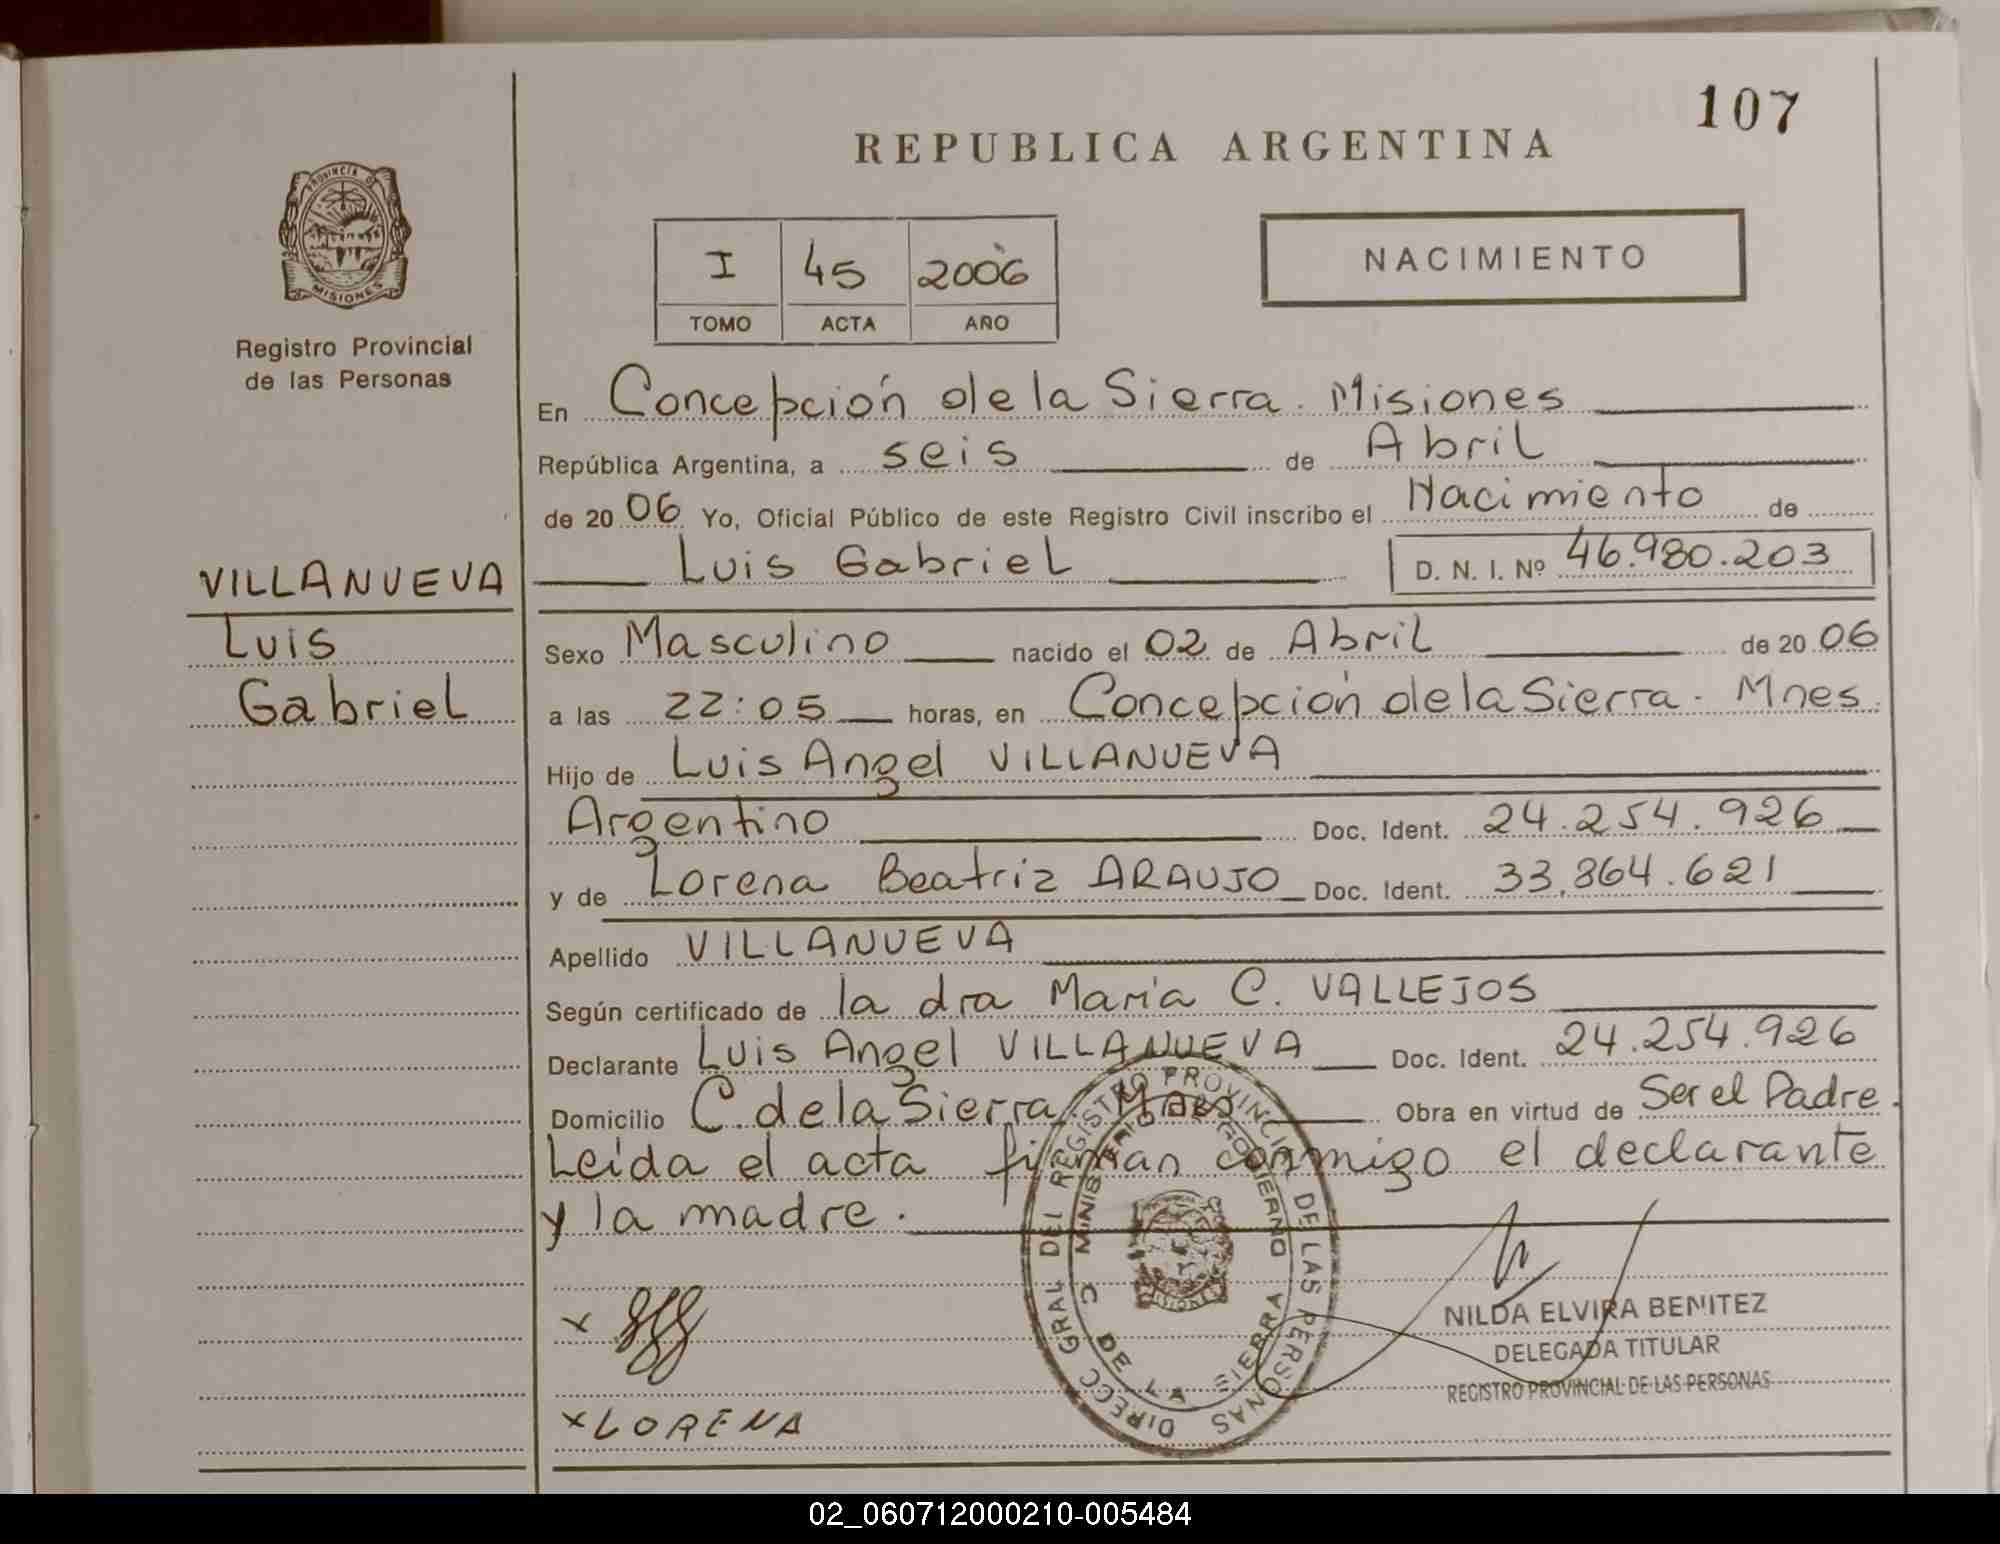 107
REPUBLICA ARGENTINA
PROVINCIA DE
MISIONES
Registro Provincial
de las Personas
I 45 2006
TOMO ACTA AÑO
NACIMIENTO
En Concepción de la Sierra. Misiones
República Argentina, a seis de Abril
de 2006 Yo, Oficial Público de este Registro Civil inscribo el Nacimiento de
Luis Gabriel D. N. I. Nº 46.980.203
VILLANUEVA
Luis
Gabriel
Sexo Masculino nacido el 02 de Abril de 2006
a las 22:05 horas, en Concepción de la Sierra. Mnes.
Hijo de Luis Angel VILLANUEVA
Argentino Doc. Ident. 24.254.926
y de Lorena Beatriz ARAUJO Doc. Ident. 33.864.621
Apellido VILLANUEVA
Según certificado de la dra María C. VALLEJOS
Declarante Luis Angel VILLANUEVA Doc. Ident. 24.254.926
Domicilio C. de la Sierra. Mnes Obra en virtud de Ser el Padre.
Leida el acta firman conmigo el declarante
y la madre.
DIRECC GRAL DEL REGISTRO PROVINCIAL DE LAS PERSONAS
MINISTERIO DE GOBIERNO
C DE LA SIERRA
MISIONES
NILDA ELVIRA BENITEZ
DELEGADA TITULAR
REGISTRO PROVINCIAL DE LAS PERSONAS
x
x LORENA
02_060712000210-005484